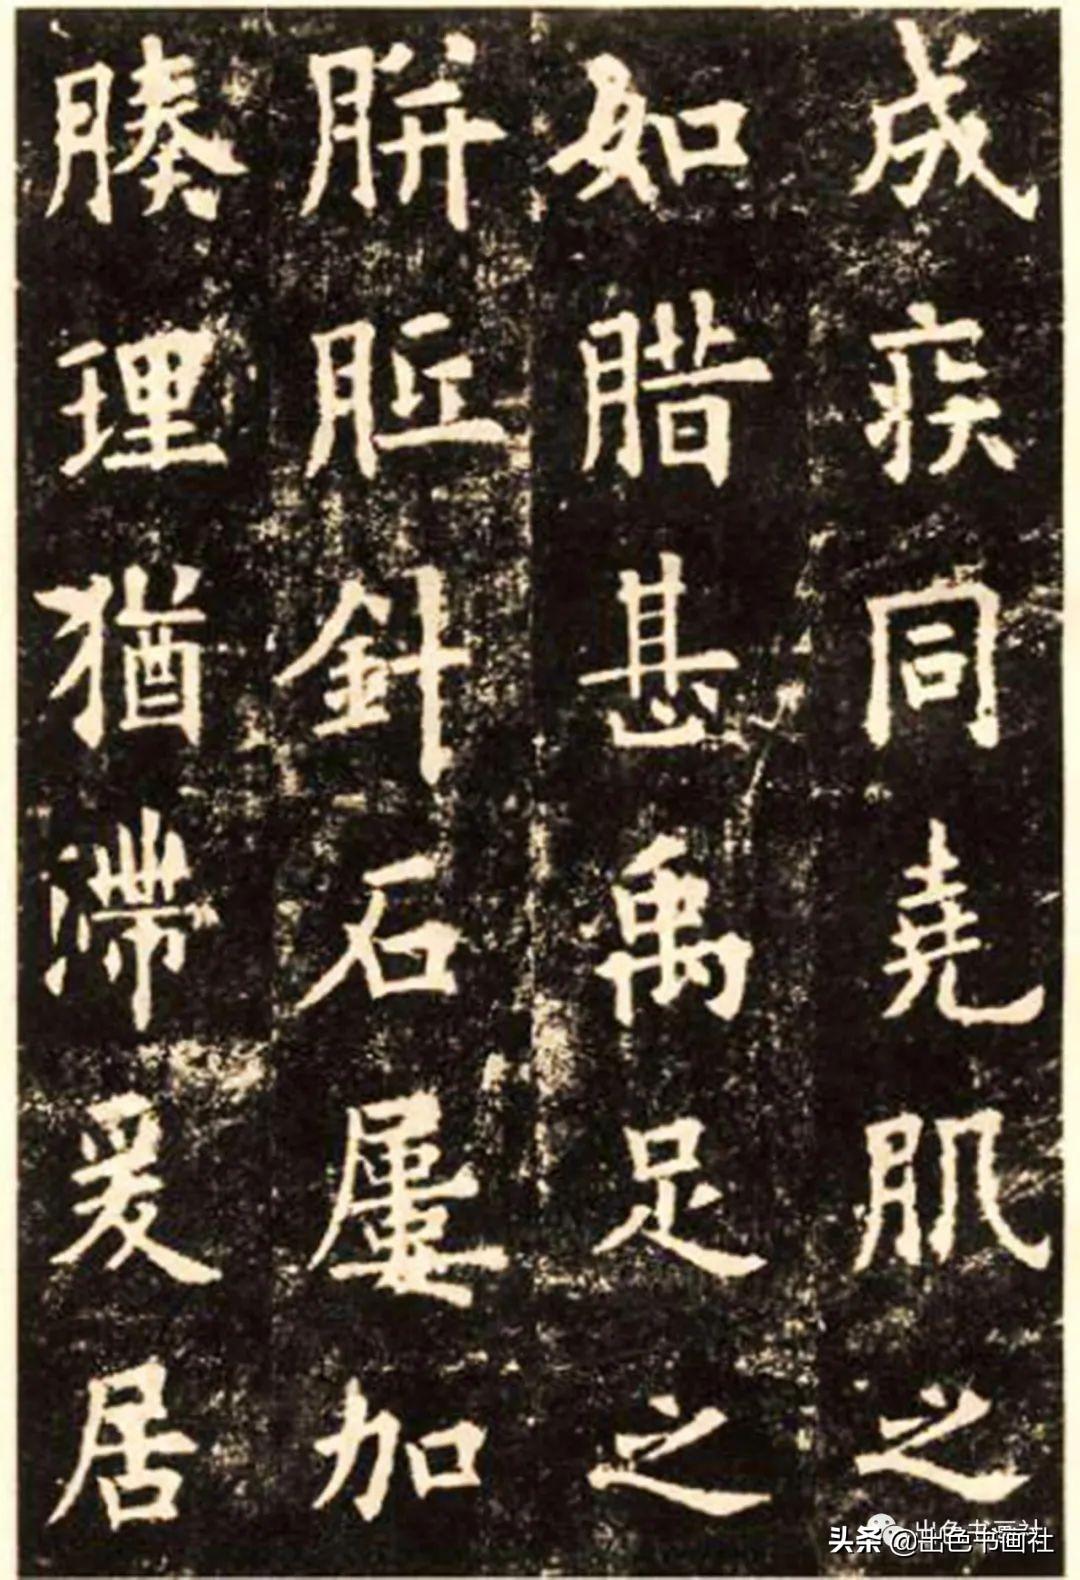 成疾同堯肌之
如腊甚禹足之
胼胝針石屢加
腠理猶滯爰居
头条@出色书画社
出色书画社